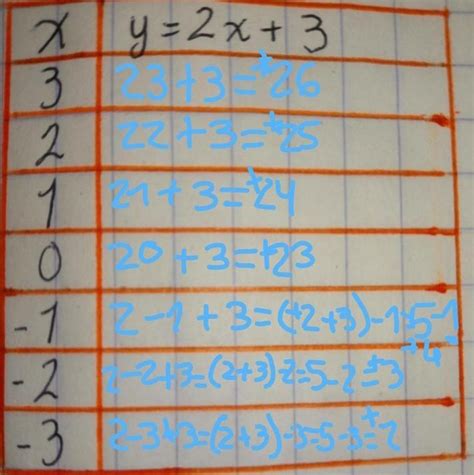 x y = 2x + 3
3 23 + 3 = +26
2 22 + 3 = +25
1 21 + 3 = +24
0 20 + 3 = +23
-1 2 - 1 + 3 = (+2 + 3) - 1 = 5 - 1
= +4
-2 2 - 2 + 3 = (2 + 3) - 2 = 5 - 2 = +3
-3 2 - 3 + 3 = (2 + 3) - 3 = 5 - 3 = +2